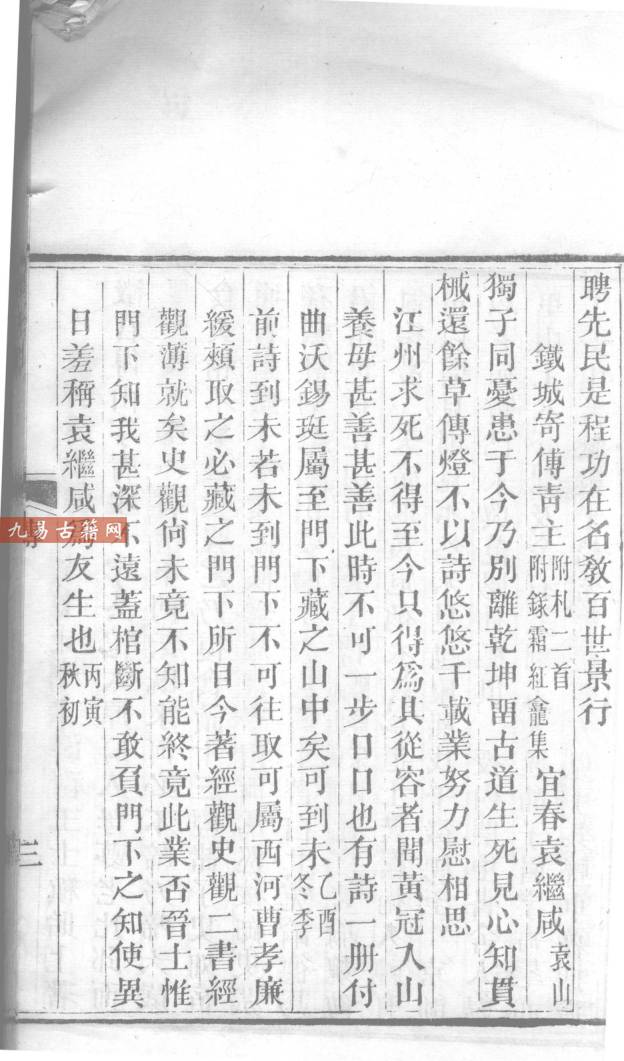 聘先民是程功在名教百世景行
鐵城寄傅青主附札二首附錄霜紅龕集宜春袁繼咸袁山
獨子同憂患于今乃別離乾坤畱古道生死見心知貫
械還餘草傳燈不以詩悠悠千載業努力慰相思
江州求死不得至今只得爲其從容者聞黃冠入山
養母甚善甚善此時不可一步口口也有詩一册付
曲沃錫珽屬至門下藏之山中矣可到未乙酉冬季
前詩到未若未到門下不可往取可屬西河曹孝廉
緩頰取之必藏之門下所日今著經觀史觀二書經
觀薄就矣史觀尙未竟不知能終竟此業否晉士惟
門下知我甚深不遠蓋棺斷不敢負門下之知使異
日羞稱袁繼咸爲友生也丙寅秋初
三
九易古籍网